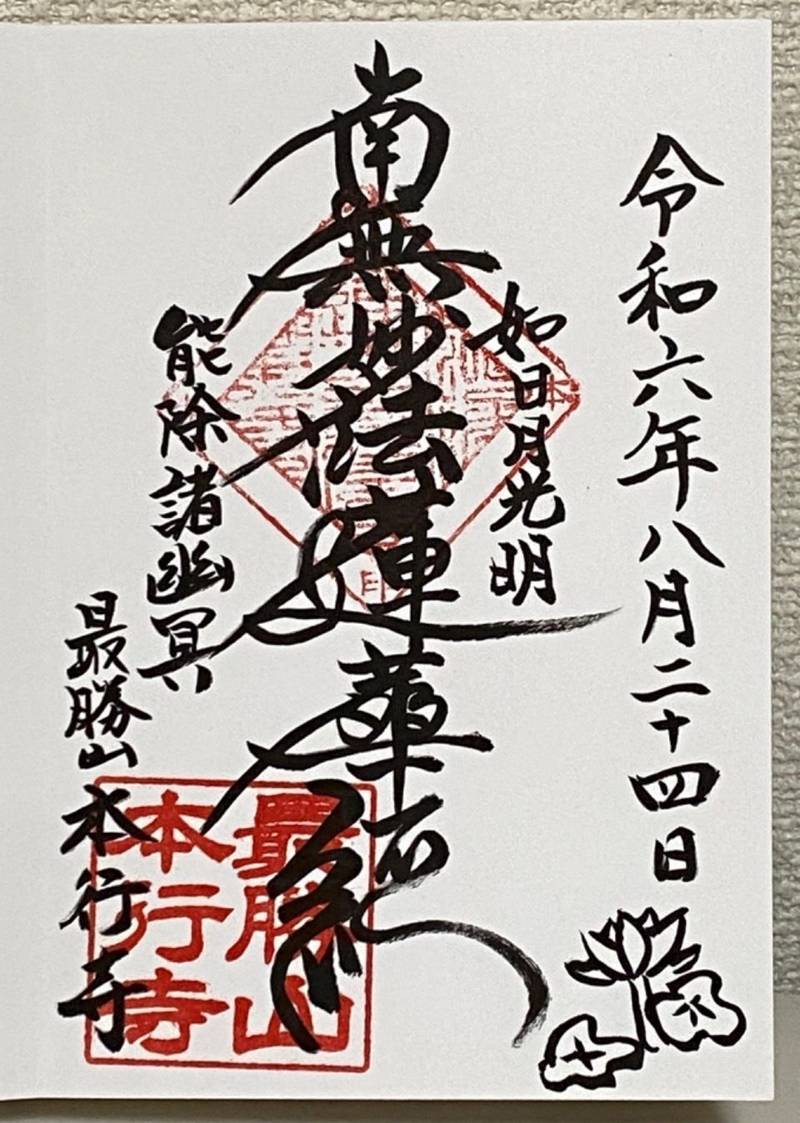 令和六年八月二十四日
如日月光明
南無妙法蓮華経
能除諸幽冥
最勝山本行寺
最勝山
本行寺